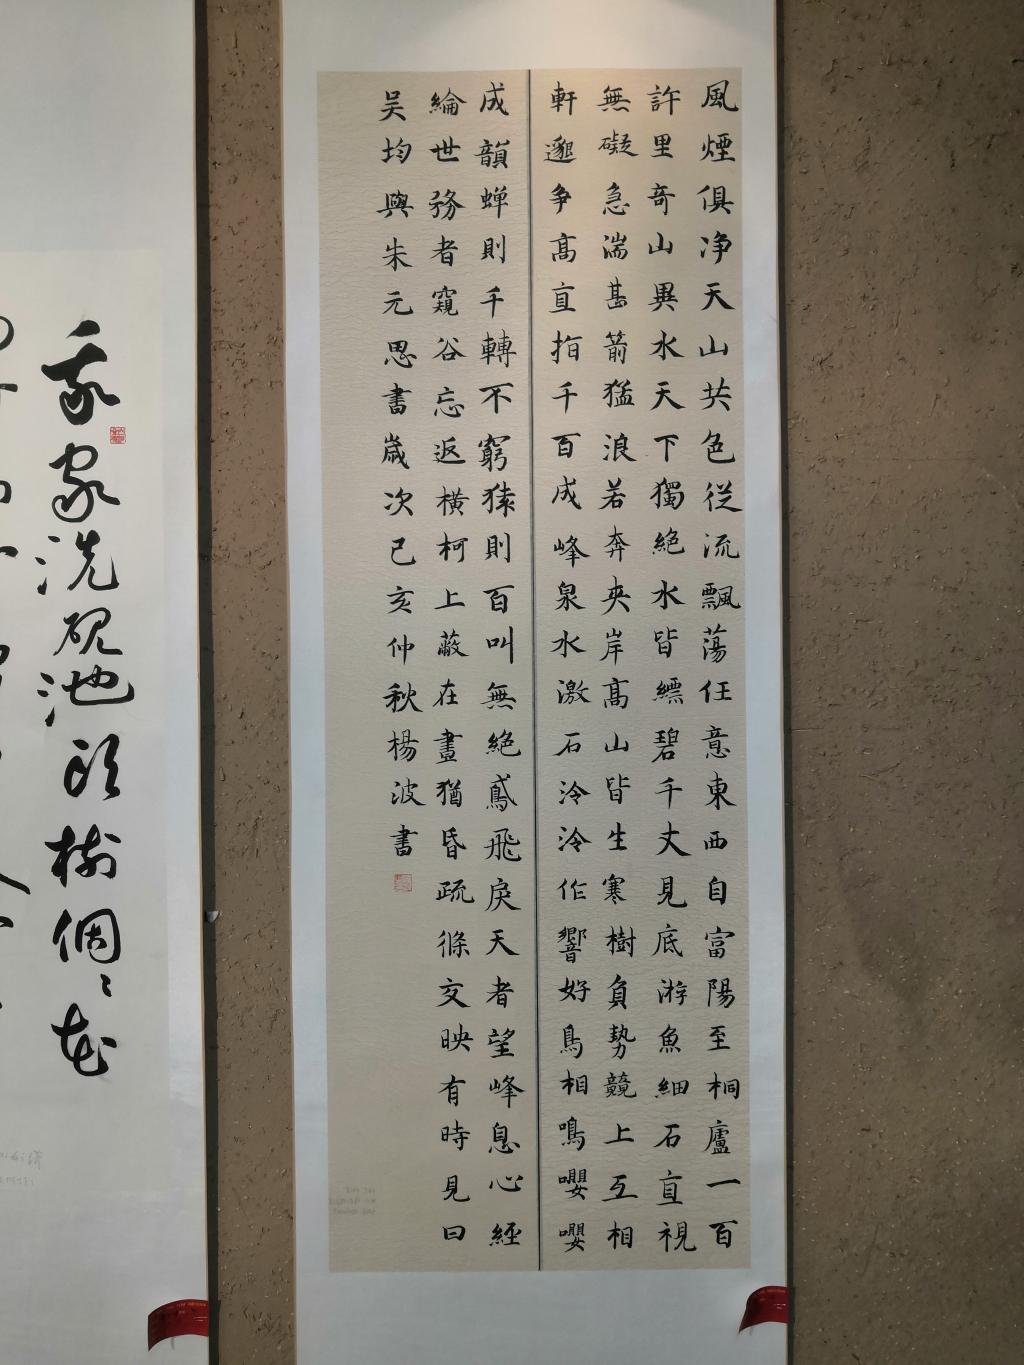 風煙俱净天山共色從流飄蕩任意東西自富陽至桐廬一百
許里奇山異水天下獨絕水皆縹碧千丈見底游魚細石直視
無礙急湍甚箭猛浪若奔夹岸高山皆生寒樹負勢競上互相
軒邈争高直指千百成峰泉水激石泠泠作響好鳥相鳴嚶嚶
成韻蝉則千轉不窮猿則百叫無絕鳶飛戾天者望峰息心經
綸世務者窺谷忘返横柯上蔽在晝猶昏疏條交映有時見日
吴均與朱元思書歲次己亥仲秋楊波書
我家洗硯池頭樹個〻花